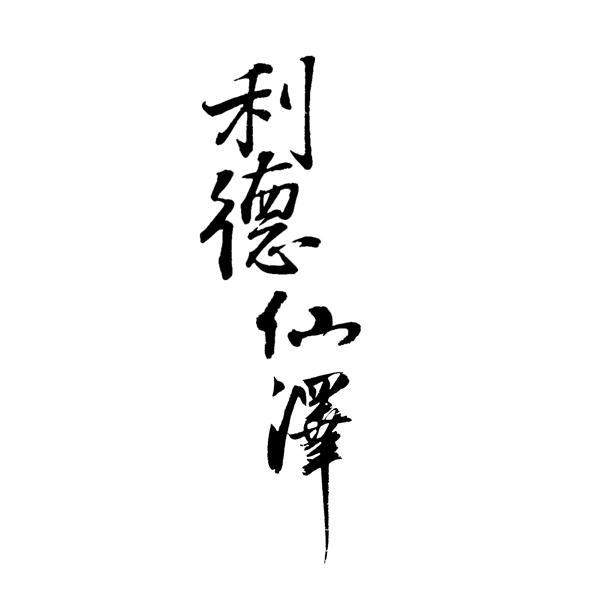 利德仙澤